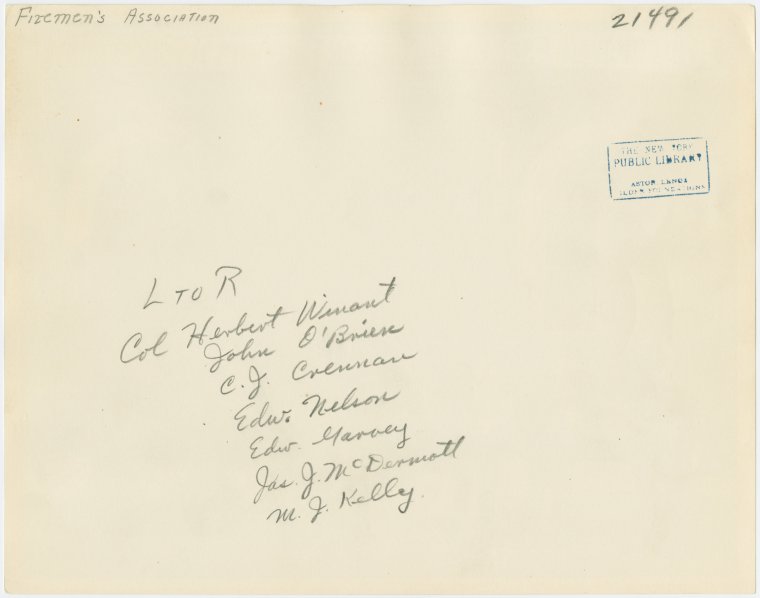 Firemen's Association
21491
THE NEW YORK
PUBLIC LIBRARY
ASTOR LENOX
TILDEN FOUNDATIONS
L TO R
Col Herbert Winant
John O'Brien
C. J. Crennan
Edw. Nelson
Edw. Garvey
Jas. J. McDermott
M. J. Kelly.